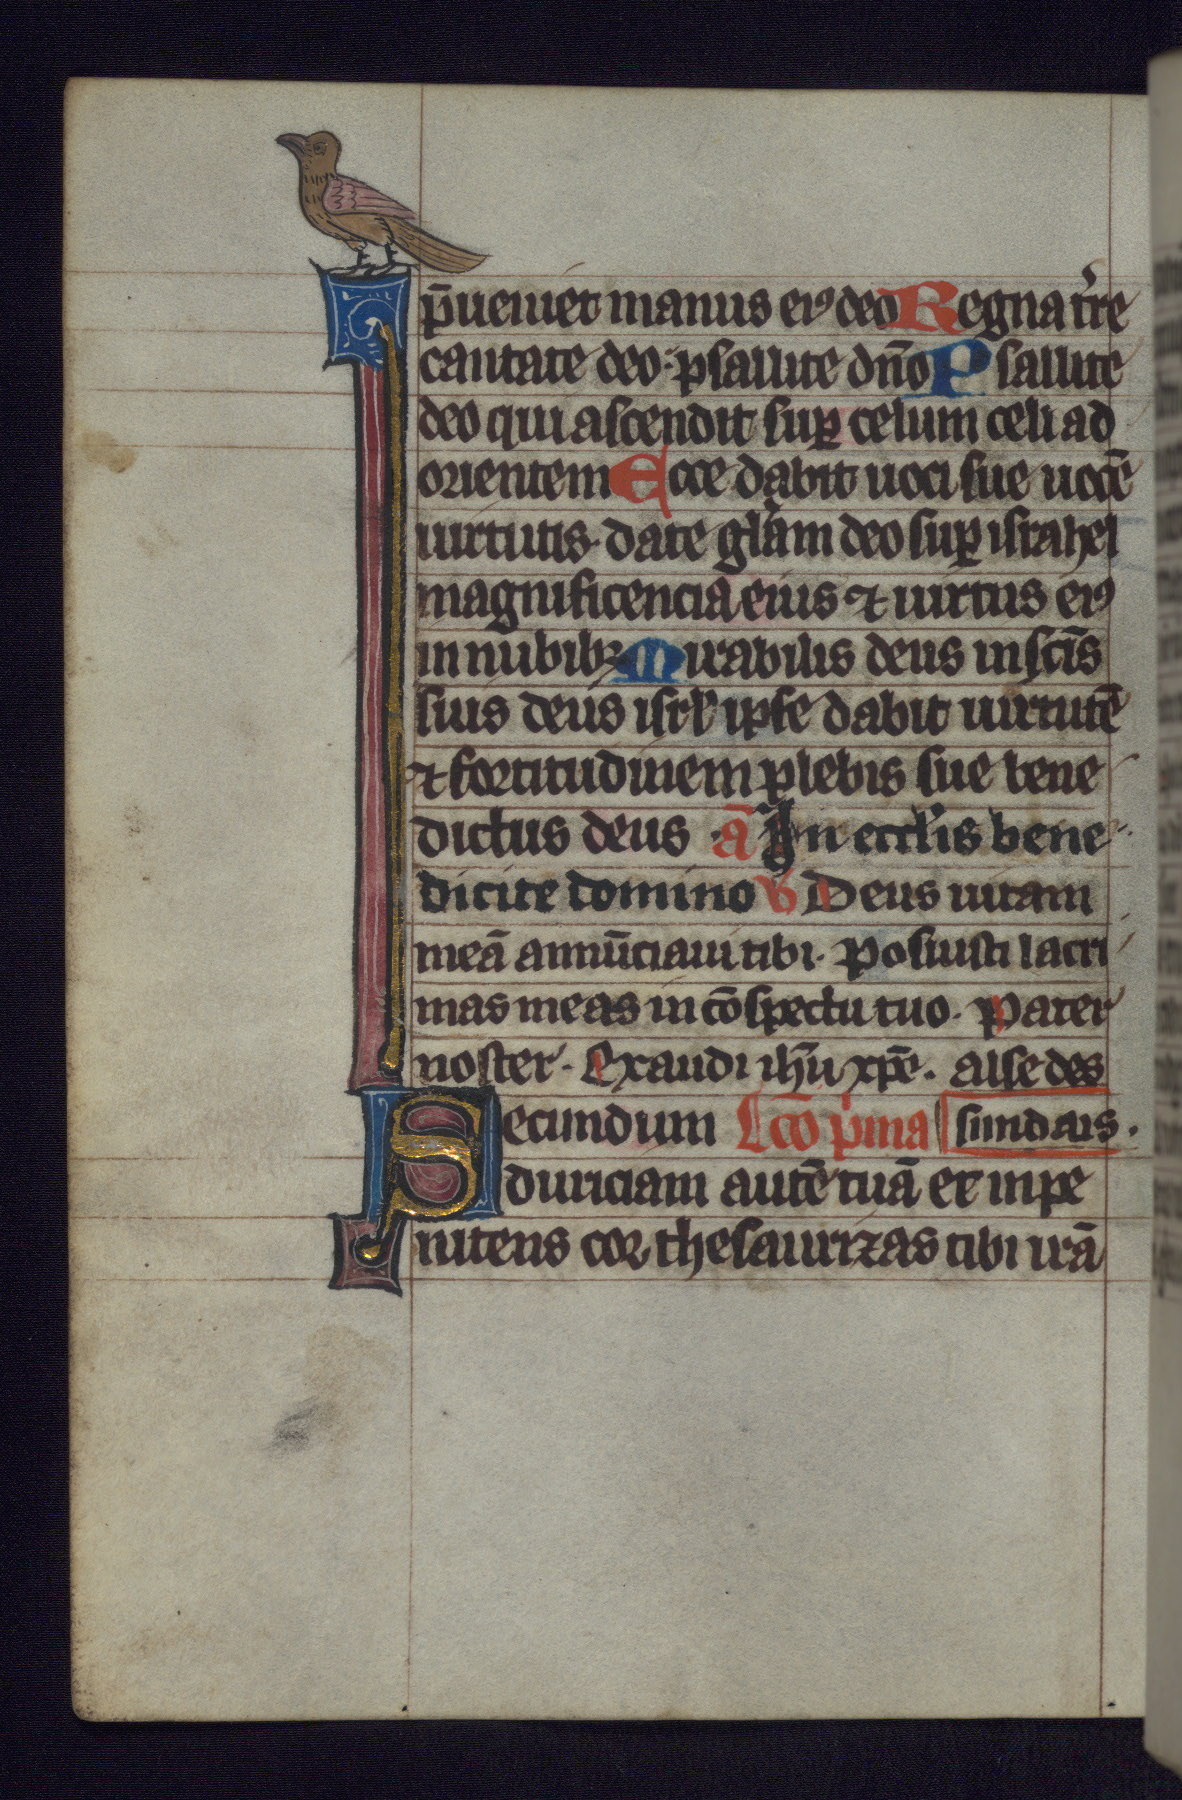 p̄ueniet manus eiꝰ deo Regna tr̄re
cantate deo: psallite dn̄o Psallite
deo qui ascendit suꝑ celum celi ad
orientem Ecce dabit uoci sue uocē
uirtutis. date glām deo suꝑ israhel
magnificencia eius ⁊ uirtus eiꝰ
in nubibꝫ Mirabilis deus in scīs
suis deus isrl̄ ipse dabit uirtutē
⁊ fortitudinem plebis sue bene
dictus deus . ā In eccl̄is bene
dicite domino V Deus uitam
meā annūciaui tibi. Posuisti lacri
mas meas in cōspectu tuo. Pater
noster. Exaudi ih̄u xp̄e. alse des
ecundum Lc̄o p̓ma sundais.
S duriciam autē tuā et inpe
nitens cor thesaurizas tibi irā